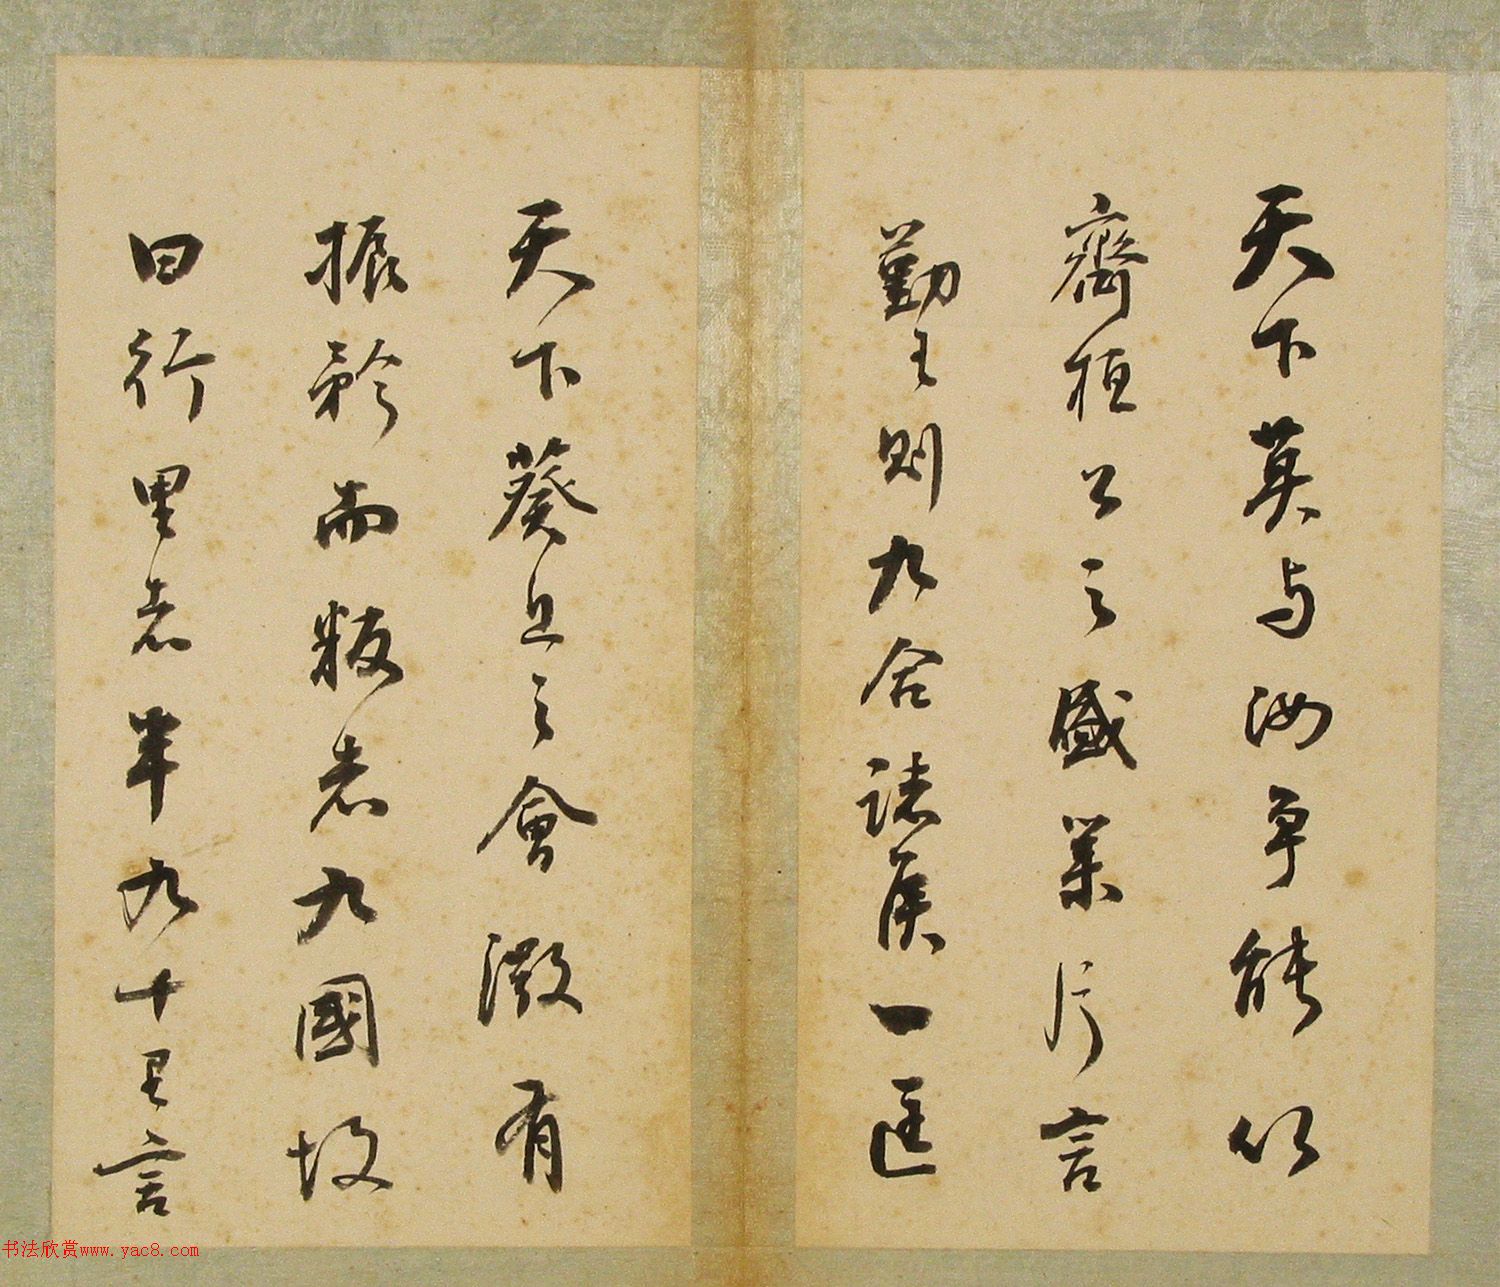 天下莫与汝争能以
齊桓公之盛業片言
勤王則九合諸侯一匡
天下葵丘之會微有
振矜而叛者九國故
曰行里者半九十里言
书法欣赏www.yac8.com